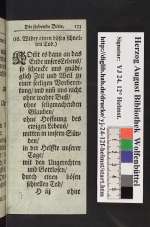 Die siebende Bitte. 173
(18. Wider einen bösen schnellen
Tod.)
Oder es dann an das
Ende unsers Lebens/
so schencke uns gnädiglich
Zeit und Weil zu
einer seeligen Vorbereitung/
und laß uns nicht
ohne wahre Buß/
ohne seligmachenden
Glauben/
ohne Hoffnung des
ewigen Lebens/
mitten in unsern Sünden/
in der Helffte unserer
Tage/
mit den Ungerechten
und Gottlosen/
durch einen bösen
schnellen Tod/
H iij ohne
Herzog August
Bibliothek Wolfenbüttel
Signatur: VJ 24. 12° Helmst.
http://diglib.hab.de/drucke/yj-24-12f-helmst/start.htm